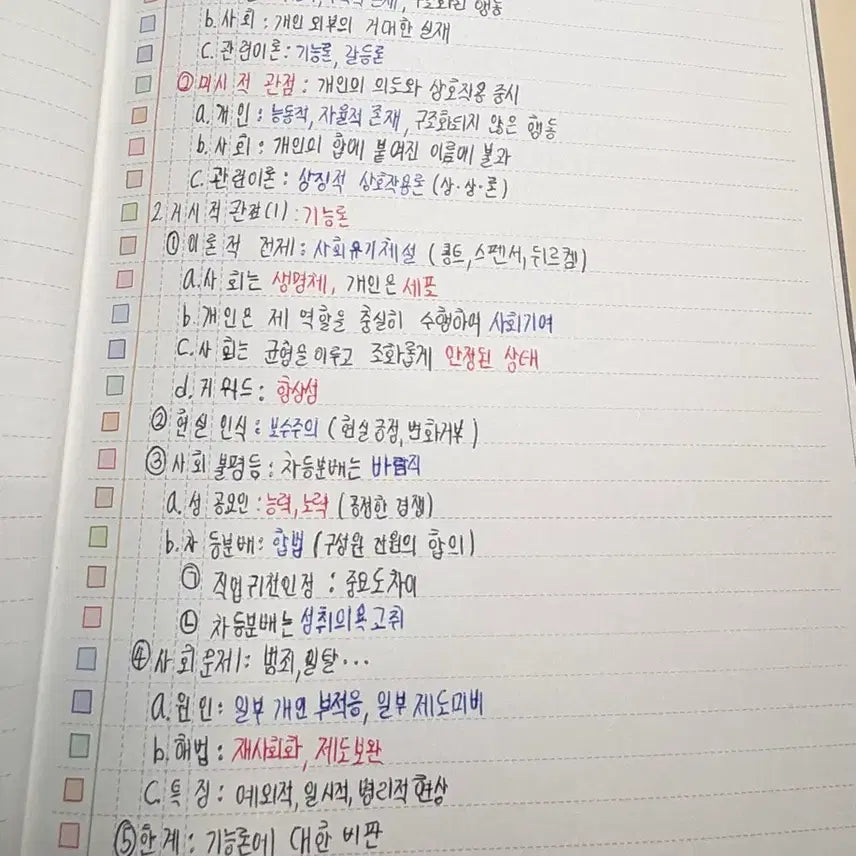 구조화된 행동
b. 사회 : 개인 외부의 거대한 실재
C. 관련이론 : 기능론, 갈등론
② 미시적 관점 : 개인의 의도와 상호작용 중시
a. 개인 : 능동적, 자율적 존재, 구조화되지 않은 행동
b. 사회 : 개인의 합에 붙여진 이름에 불과
C. 관련이론 : 상징적 상호작용론 (상·상·론)
2. 거시적 관점(1) : 기능론
① 이론적 전제 : 사회유기체설 (콩트, 스펜서, 뒤르켐)
a. 사회는 생명체, 개인은 세포
b. 개인은 제 역할을 충실히 수행하여 사회기여
C. 사회는 균형을 이루고 조화롭게 안정된 상태
d. 키워드 : 항상성
② 현실 인식 : 보수주의 (현실긍정, 변화거부)
③ 사회 불평등 : 차등분배는 바람직
a. 성공요인 : 능력, 노력 (공정한 경쟁)
b. 차등분배 : 합법 (구성원 전원의 합의)
㉠ 직업귀천인정 : 중요도차이
㉡ 차등분배는 성취의욕고취
④ 사회문제 : 범죄, 일탈···
a. 원인 : 일부 개인 부적응, 일부 제도미비
b. 해법 : 재사회화, 제도보완
C. 특징 : 예외적, 일시적, 병리적 현상
⑤ 한계 : 기능론에 대한 비판